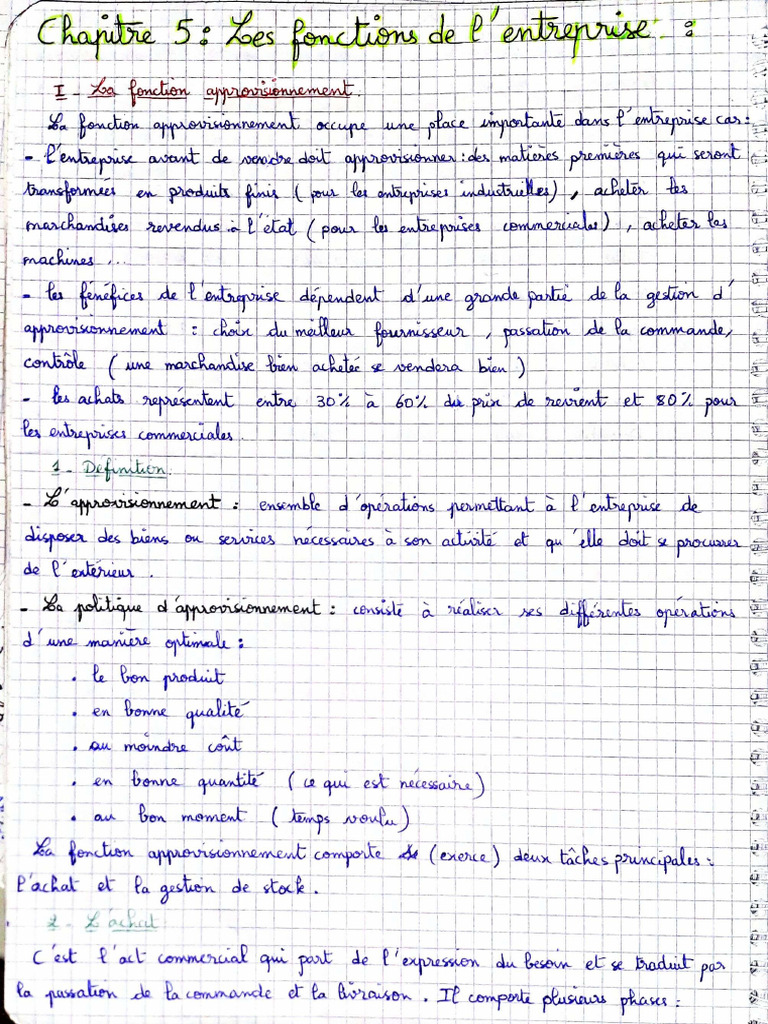 Chapitre 5 : Les fonctions de l'entreprise :
I - La fonction approvisionnement.
La fonction approvisionnement occupe une place importante dans l'entreprise car:
- l'entreprise avant de vendre doit approvisionner : des matières premières qui seront
transformées en produits finis ( pour les entreprises industrielles) , acheter les
marchandises revendus à l'état ( pour les entreprises commerciales) , acheter les
machines ...
- les fénéfices de l'entreprise dépendent d'une grande partie de la gestion d'
approvisionnement : choix du meilleur fournisseur , passation de la commande,
contrôle ( une marchandise bien achetée se vendera bien )
- les achats représentent entre 30% à 60% du prix de revient et 80% pour
les entreprises commerciales.
1 - Définition.
- L'approvisionnement : ensemble d'opérations permettant à l'entreprise de
disposer des biens ou services nécessaires à son activité et qu'elle doit se procurer
de l'extérieur .
- La politique d'approvisionnement : consiste à réaliser ses différentes opérations
d'une manière optimale :
. le bon produit
. en bonne qualité
. au moindre coût
. en bonne quantité ( ce qui est nécessaire )
. au bon moment ( temps voulu )
La fonction approvisionnement comporte (exerce) deux tâches principales :
l'achat et la gestion de stock .
2 - L'achat
C'est l'act commercial qui part de l'expression du besoin et se traduit par
la passation de la commande et la livraison . Il comporte plusieurs phases :